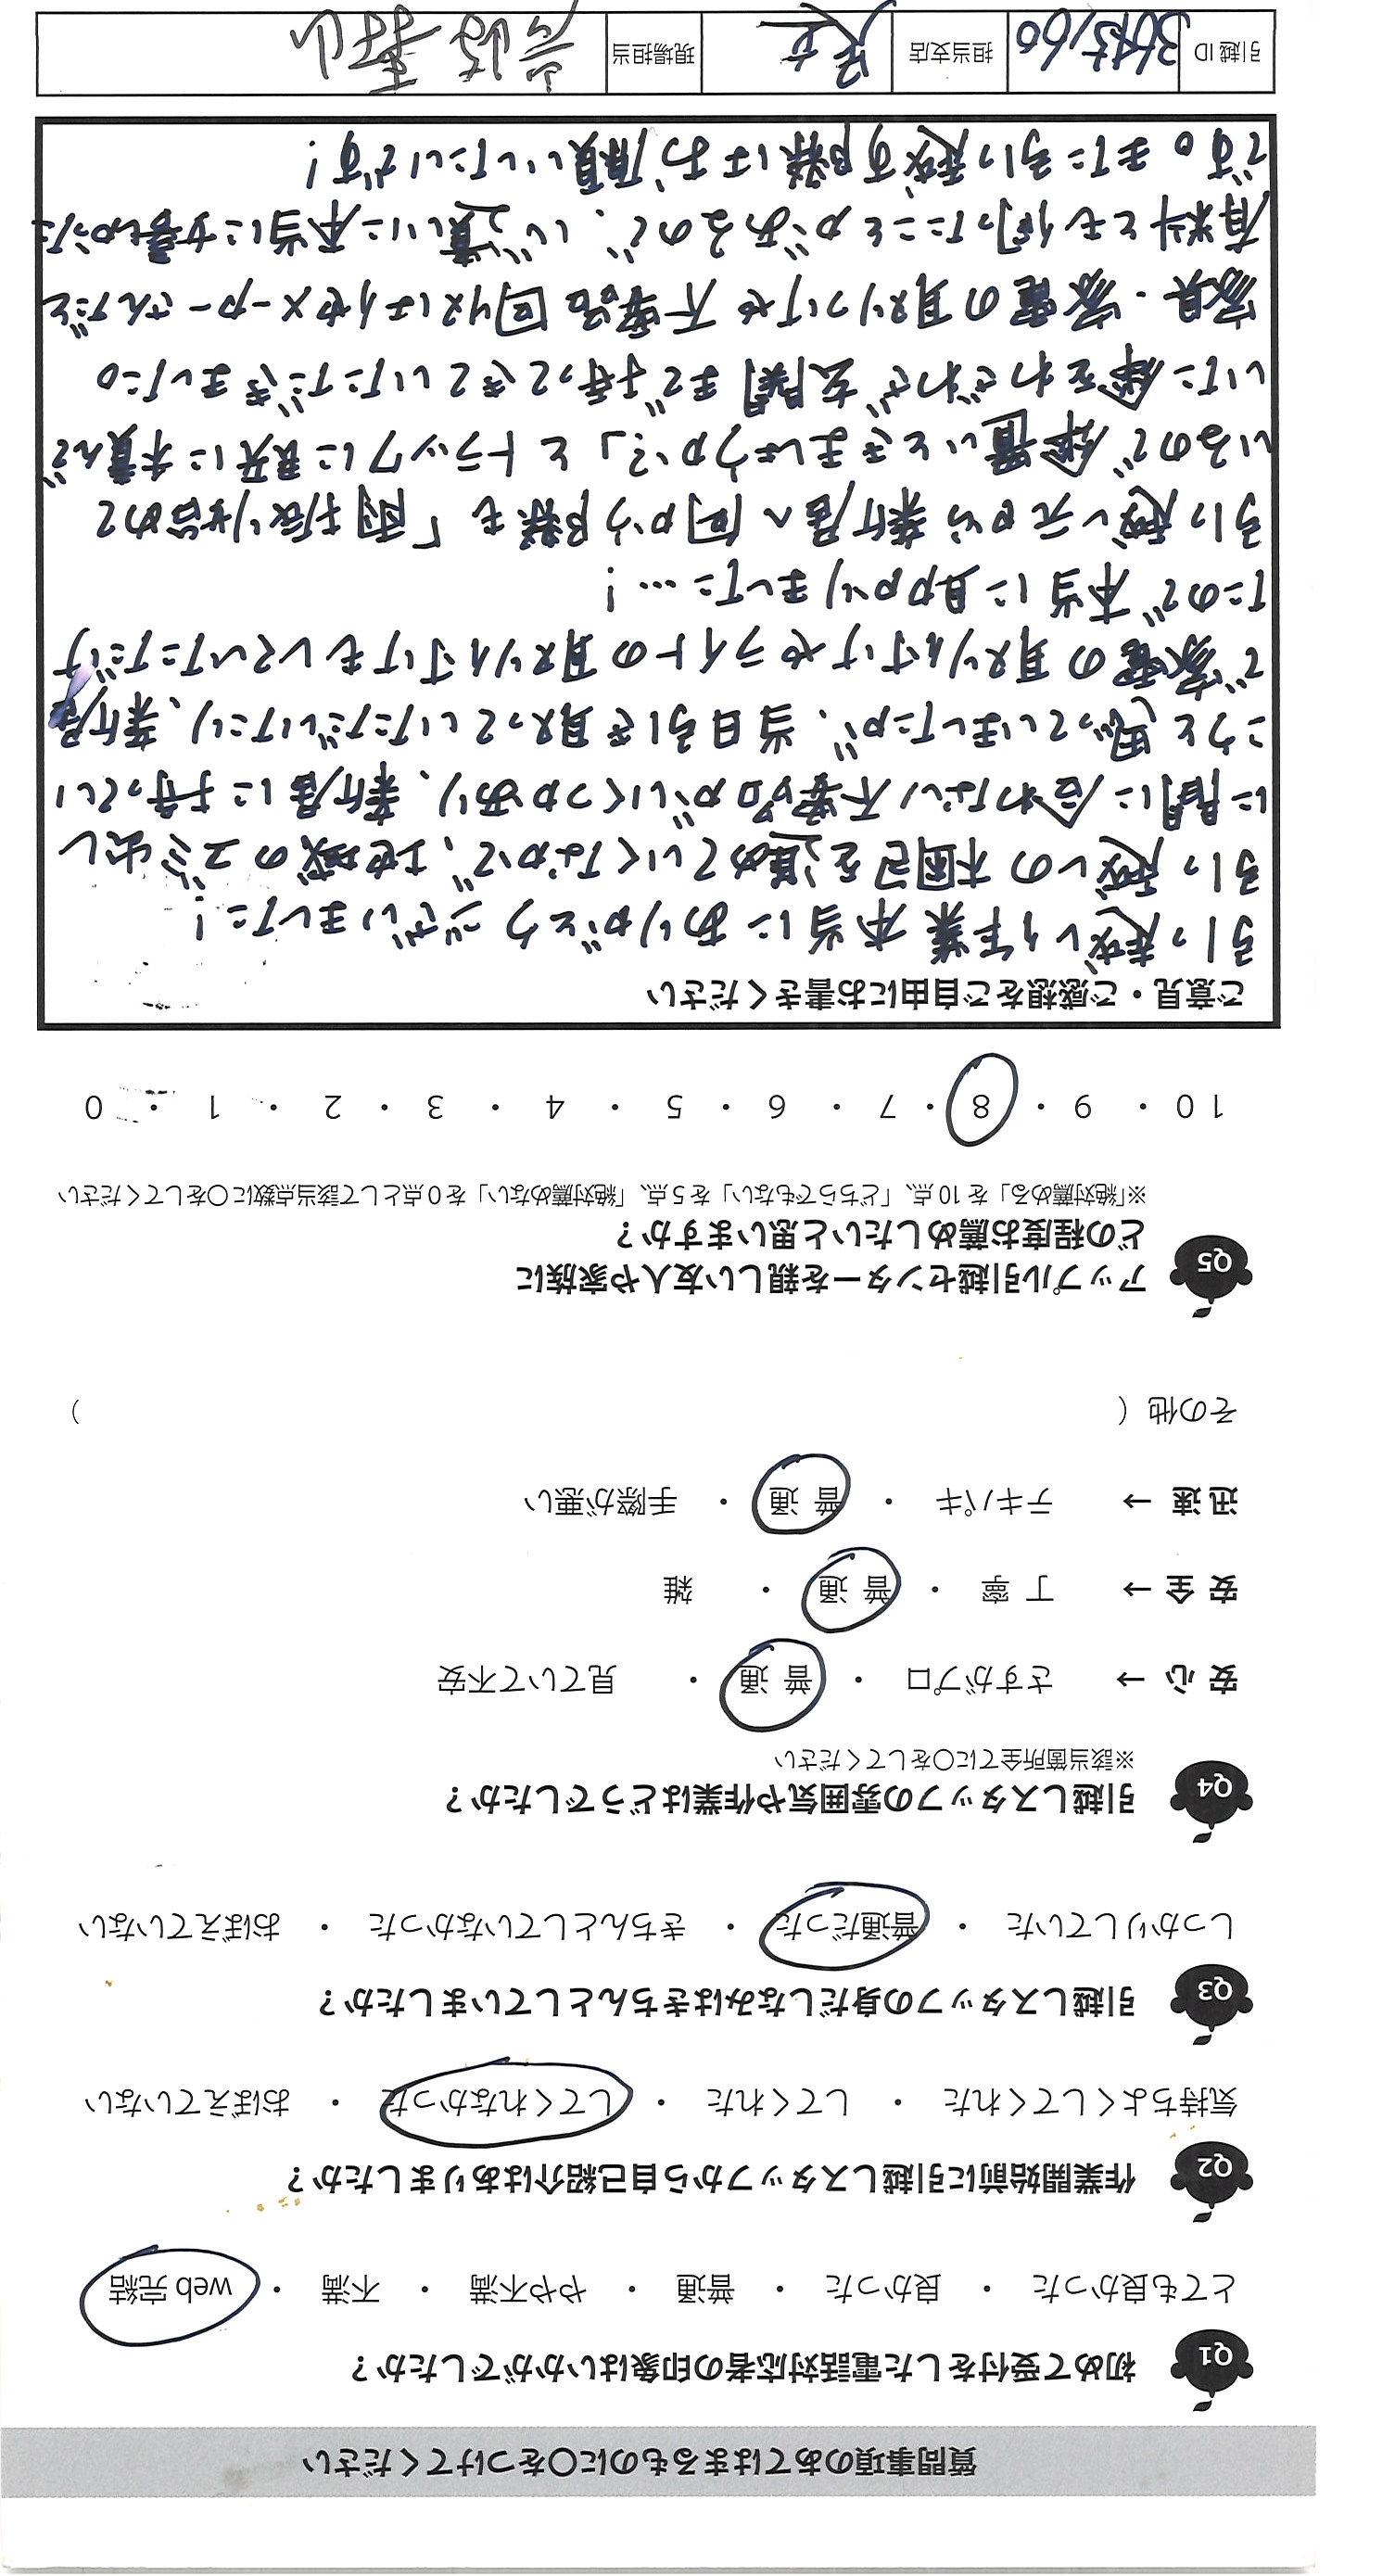 質問事項のあてはまるものに○をつけてください
Q1 初めて受付をした電話対応者の印象はいかがでしたか?
とても良かった ・ 良かった ・ 普通 ・ やや不満 ・ 不満 ・ web 完結
Q2 作業開始前に引越しスタッフから自己紹介はありましたか?
気持ちよくしてくれた ・ してくれた ・ してくれなかった ・ おぼえていない
Q3 引越しスタッフの身だしなみはきちんとしていましたか?
しっかりしていた ・ 普通だった ・ きちんとしていなかった ・ おぼえていない
Q4 引越しスタッフの雰囲気や作業はどうでしたか?
※該当箇所全てに○をしてください
安 心 → さすがプロ ・ 普 通 ・ 見ていて不安
安 全 → 丁 寧 ・ 普 通 ・ 雑
迅 速 → テキパキ ・ 普 通 ・ 手際が悪い
その他 ( )
Q5 アップル引越センターを親しい友人や家族に
どの程度お薦めしたいと思いますか?
※「絶対薦める」を 10 点、「どちらでもない」を 5 点、「絶対薦めない」を 0 点として該当点数に○をしてください
10 ・ 9 ・ 8 ・ 7 ・ 6 ・ 5 ・ 4 ・ 3 ・ 2 ・ 1 ・ 0
ご意見・ご感想をご自由にお書きください
引っ越し作業本当にありがとうございました!
引っ越しの木困包を進めていくなかで、地域のゴミ出し
に間に合わない不要品がいくつかあり、新居に持ってい
こうと思っていましたが、当日引き取っていただいたり、新居
で家電の取り付けやライトの取り付けもしていただけ
たので本当に助かりました…!
引っ越し元から新居へ向かう際も「雨が振り始めて
いるので傘置いときましょうか?」とトラックに最初に積んで
いた傘をわざわざ玄関まで持ってきていただきました。
家具・家電の取りつけや不要品回収は他メーカーさんだと
有料とも伺ったことがあるので、い゛真゛いに本当に女喜しかった
です。また引っ越す際はお願いしたいです!
引越 ID 担当支店 現場担当